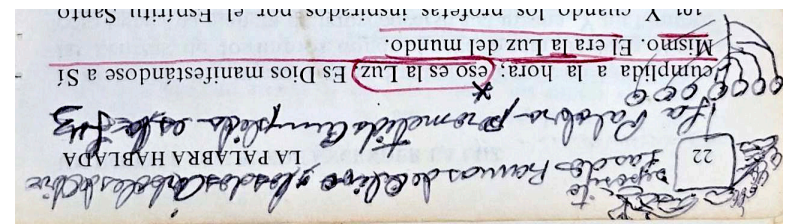 Ramos de Olivo, y los dos Arboles de Olivo
22 LA PALABRA HABLADA
La Palabra prometida Cumplida es la Luz
cumplida a la hora; eso es la Luz. Es Dios manifestándose a Sí
Mismo. El era la Luz del mundo.
101 Y cuando los profetas inspirados por el Espíritu Santo